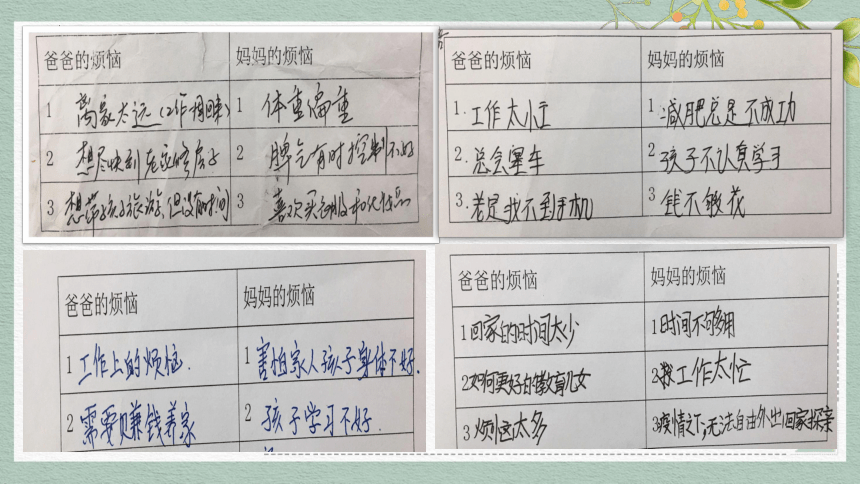 爸爸的烦恼 妈妈的烦恼
1 离家太远(工作相回来) 1 体重偏重
2 想尽快到龙泣修房子 2 脾气有时控制不好
3 想带孩子旅游,但没有时间 3 喜欢买衣服和化妆品
爸爸的烦恼 妈妈的烦恼
1. 工作太忙 1. 减肥总是不成功
2. 总会塞车 2. 孩子不认真学习
3. 老是找不到手机 3 钱不够花
爸爸的烦恼 妈妈的烦恼
1 工作上的烦恼. 1 害怕家人孩子身体不好.
2 需要赚钱养家 2 孩子学习不好.
爸爸的烦恼 妈妈的烦恼
1回家的时间太少 1时间不够用
2如何更好的教育儿女 2工作太忙
3烦恼太多 3疫情之下,无法自由外出回家探亲